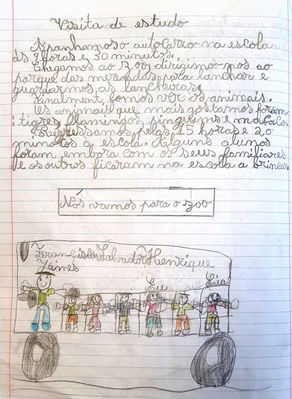 Visita de estudo
Apanhamos o autocarro na escola
às 9 horas e 30 minutos.
Chegamos ao zoo dirigimo-nos ao
parque das merendas para lanchar e
guardarmos as lancheiras.
Finalmente fomos vêr os animais.
Os animais que mais gostamos foram:
tigres, flamingos, pinguins e macacos
Regressamos pelas 15 horas e 20
minutos á escola. Alguns alunos
foram embora com os seus familiares
e os outros ficaram na escola a brincar
Nós vamos para o zoo
Francisco Salvador Henrique
James
Eu